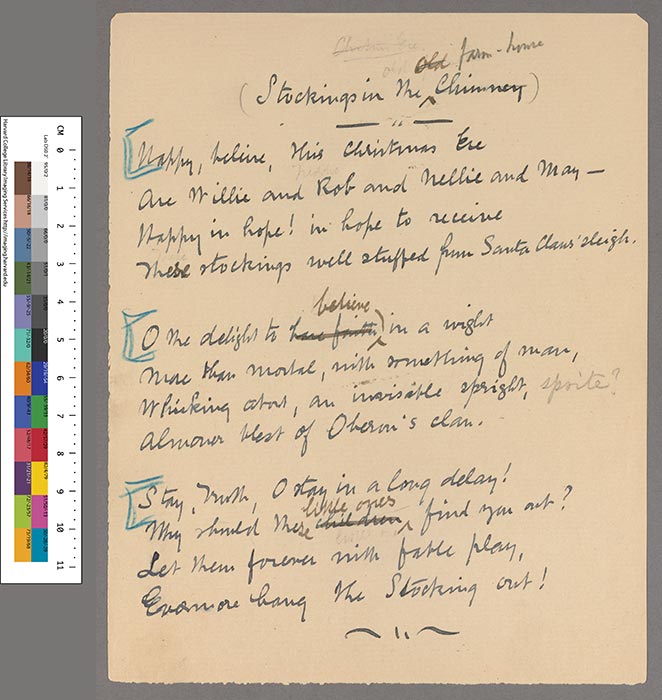 Christmas Eve
old farm-house
(Stockings in the Chimney)
Happy, believe, this Christmas Eve
Are Willie and Rob and Nellie and May—
Happy in hope! in hope to receive
These stockings well stuffed from Santa Claus' sleigh.
O the delight to have faith believe in a wight
More than mortal, with something of man,
Whisking about, an invisible spright, sprite?
Almoner blest of Oberon's clan.
Stay, Truth, O stay in a long delay!
Why should these children little ones find you out?
Let them forever with fable play,
Evermore hang the Stocking out!
Harvard College Library Imaging Services http://imaging.harvard.edu
CM 0 1 2 3 4 5 6 7 8 9 10 11